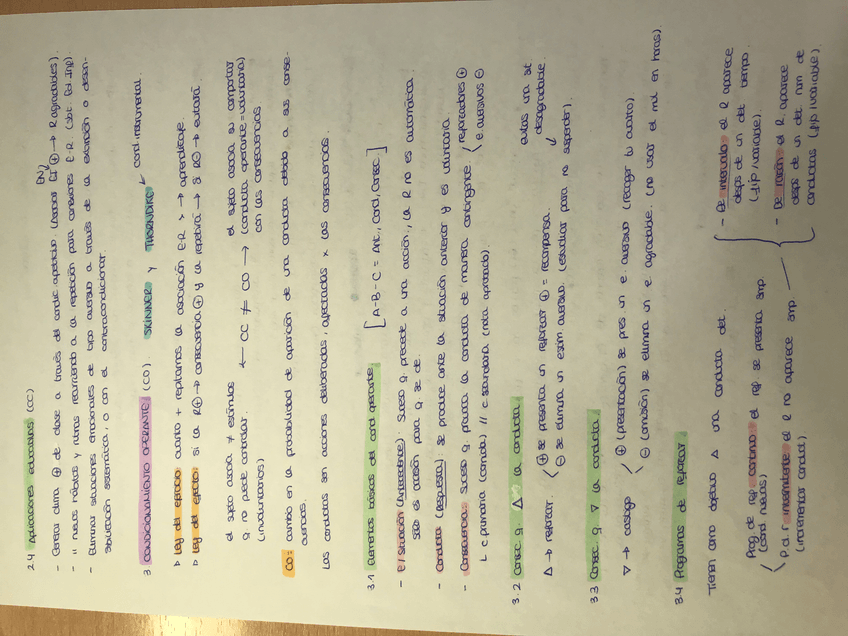 2.4 Aplicaciones educativas (CC)
- Generar clima ⊕ de clase a través del condic. apetitivo. (Asociar EI ⊕ → R agradables).
EN
- " nuevos hábitos y rutinas recurriendo a la repetición para conexiones E-R
- Eliminar situaciones emocionales de tipo aversivo a través de la extinción o desen-
sibilización sistemática, o con el contracondicionar.
3 CONDICIONAMIENTO OPERANTE (CO). SKINNER y THORNDIKE ← cond. instrumental
▹ Ley del ejercicio: cuanto + repitamos la asociación E-R > → aprendizaje.
▹ Ley del efecto: si la R⊕ → consecuencia ⊕ y la repetirá → si R⊖ → evitará.
el sujeto asocia ≠ estímulos
q no puede controlar.
(involuntarios)
← CC ≠ CO →
el sujeto asocia su comportar
(conducta operante = voluntaria)
con las consecuencias
CO: cambio en la probabilidad de aparición de una conducta debido a sus conse-
cuencias.
Las conductas son acciones deliberadas, afectadas x las consecuencias.
3.1 Elementos básicos del cond operante. [A-B-C = Ant, Cond, Consec.]
- E / situación (Antecedente): suceso q precede a una acción, la R no es automática.
solo es ocasión para q se dé.
- Conducta (Respuesta): se produce ante la situación anterior y es voluntaria
- Consecuencia: suceso q provoca la conducta de manera contingente. < reforzadores ⊕
e. aversivos ⊖
L c. primaria (comida) // c. secundaria (nota aprobado).
3.2 Consec q △ la conducta
△ → reforzar. < ⊕ se presenta un reforzar ⊕ = recompensa.
⊖ se elimina un estím aversivo. (estudiar para no suspender).
evitas una sit
desagradable
3.3 Consec q ▽ la conducta.
▽ → castigo < ⊕ (presentación) se pres un e. aversivo (recoger tu cuarto)
⊖ (omisión) se elimina un e. agradable. (no usar el mvl en horas).
3.4 Programas de reforzar
Tienen como objetivo △ una conducta det.
Prog de ref. continuo: el ref. se presenta smp.
(cond. nuevas)
P d. r intermitente: el R no aparece smp.
(incrementar conduct)
- De intervalo: el R aparece
desps de un det tiempo.
(fijo/variable).
- De razón: el R aparece
desps de un det num de
conductas (fijo/variable).